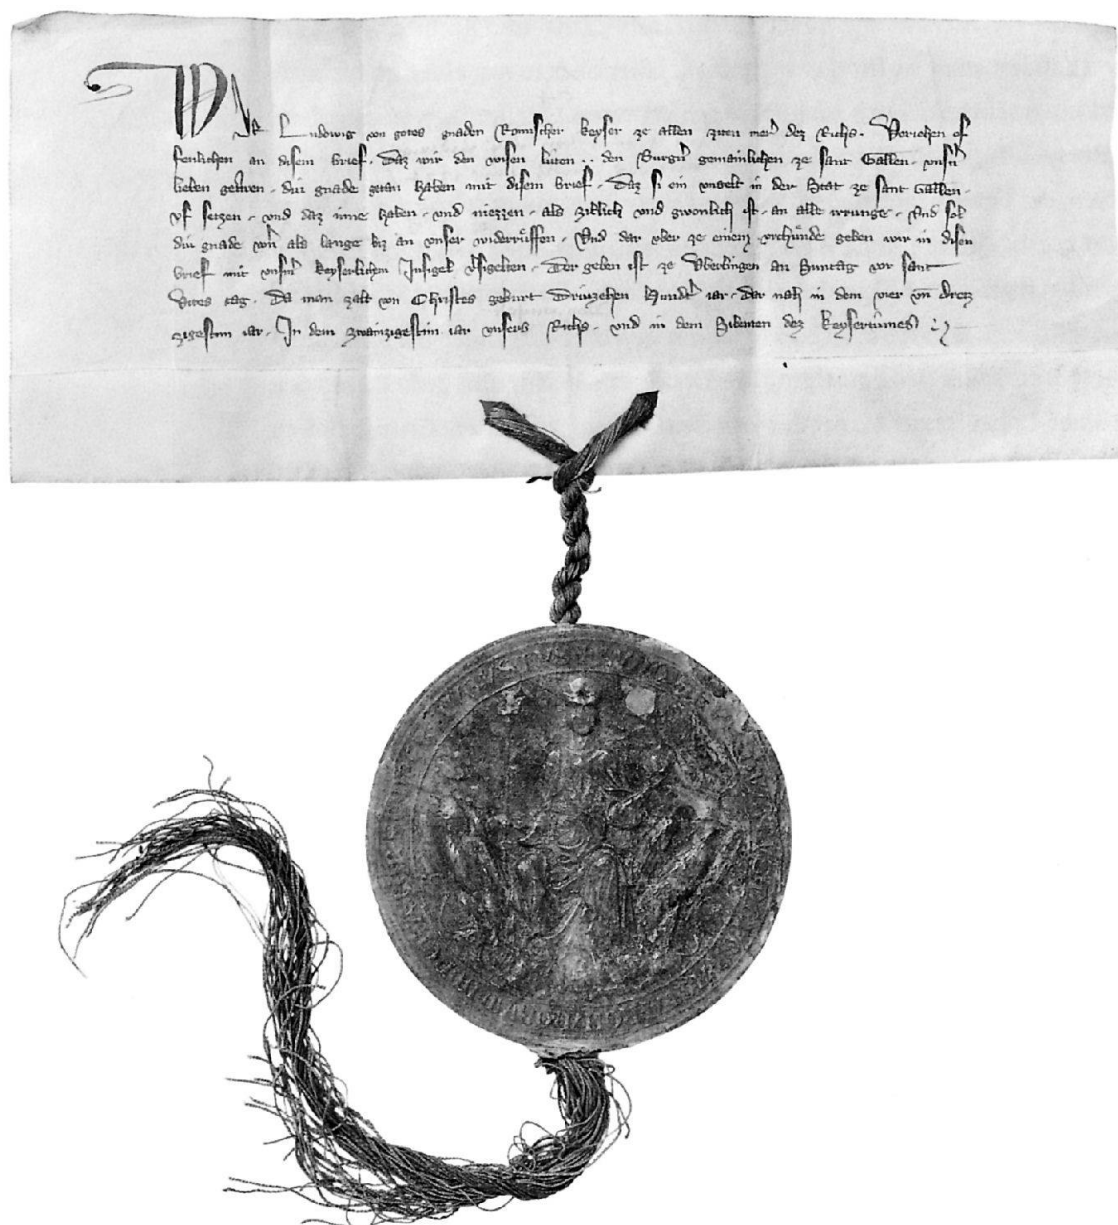 WIR Ludowig von gotes gnaden Romischer keyser ze allen ziten merer dez Richs. Veriehen of
fenlichen an disem brief. Daz wir den wisen lûten .. den Burgern gemainlichen ze sant Gallen. unsern
lieben getriwen. die gnade getan haben mit disem brief. Daz si ein ungelt in der Stat ze sant Gallen.
uf setzen. und daz inne haben. und niezzen. als zitlich und gwonlich ist. an alle irrunge. Und sol
diu gnade wern als lange biz an unser widerrůffen. Und dar uber ze einem urchůnde geben wir in disen
brief mit unserm keyserlichem Insigel versigelten. Der geben ist ze Uberlingen an Suntag vor sant
Vites tag. Da man zalt von Christes geburt Driuzehen hundert iar. dar nah in dem vier und dreiz
zigestem iar. In dem zwainzigestim iar unsers Richs. und in dem Sibenten dez keysertůmes